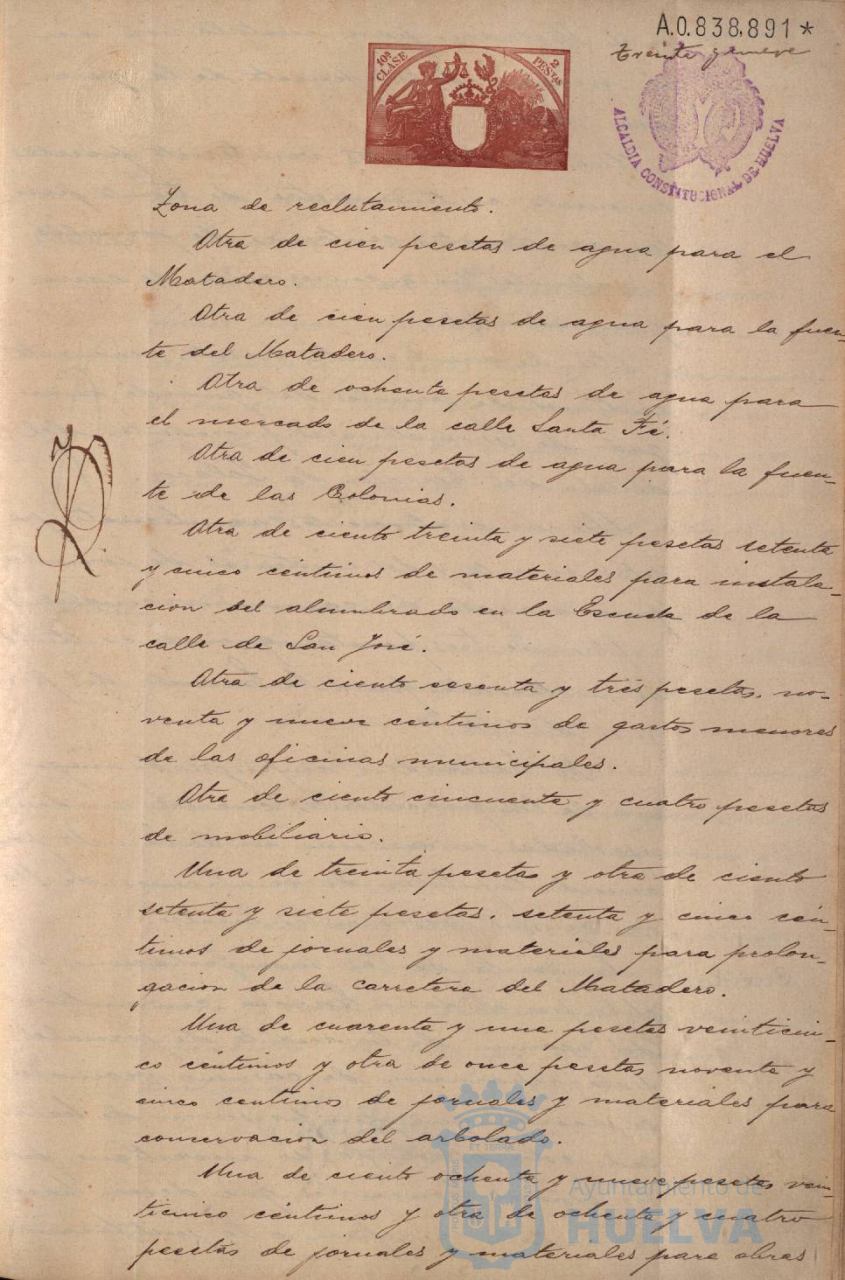 A.0.838,891*
treinta y nueve
10ª CLASE
2 PESTAS
ALCALDIA CONSTITUCIONAL DE HUELVA
Zona de reclutamiento.
Otra de cien pesetas de agua para el
Matadero.
Otra de cien pesetas de agua para la fuen-
te del Matadero.
Otra de ochenta pesetas de agua para
el mercado de la calle Santa Fé.
Otra de cien pesetas de agua para la fuen-
te de las Colonias.
Otra de ciento treinta y siete pesetas setenta
y cinco céntimos de materiales para instala-
cion del alumbrado en la Escuela de la
calle de San José.
Otra de ciento sesenta y tres pesetas, no-
venta y nueve céntimos de gastos menores
de las oficinas municipales.
Otra de ciento cincuenta y cuatro pesetas
de mobiliario.
Una de treinta pesetas y otra de ciento
setenta y siete pesetas, setenta y cinco cén-
timos de jornales y materiales para prolon-
gacion de la carretera del Matadero.
Una de cuarenta y una pesetas veinticin-
co céntimos y otra de once pesetas noventa y
cinco centimos de jornales y materiales para
conservacion del arbolado.
Una de ciento ochenta y nueve pesetas vein-
ticinco céntimos y otra de ochenta y cuatro
pesetas de jornales y materiales para obras
Ayuntamiento de
HUELVA